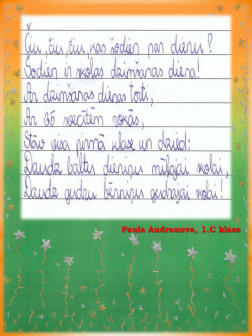 Čiu, čiu, čiu, kas šodien par dienu?
Šodien ir skolas dzimšanas diena!
Ar dzimšanas dienas torti,
Ar svecītēm rokās,
Stāv visa pirmā klase un dzied:
Daudz baltu dieniņu mīļajai skolai,
Daudz gudru bērniņu gudrajai skolai!
Paula Andronova, 1.C klase